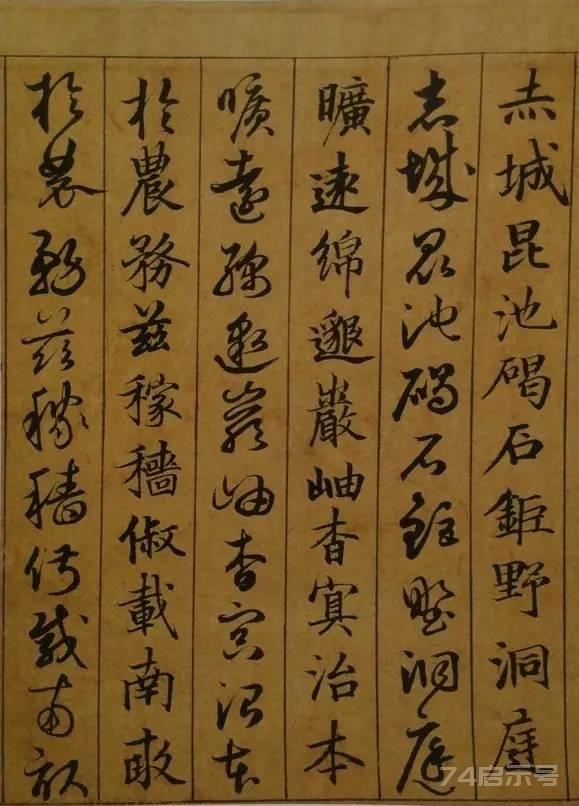 赤城昆池碣石鉅野洞庭
赤城昆池碣石鉅野洞庭
曠遠綿邈巖岫杳冥治本
曠遠綿邈巖岫杳冥治本
於農務茲稼穡俶載南畝
於農務茲稼穡俶載南畝
74启示号